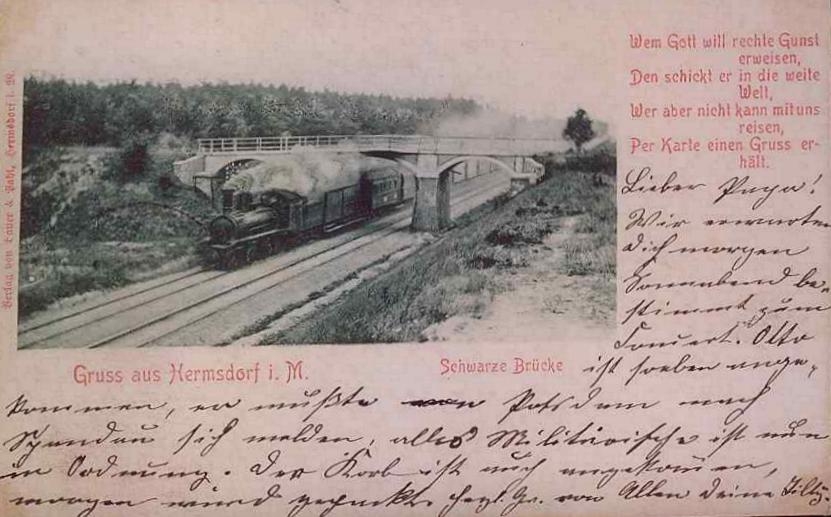 Wem Gott will rechte Gunst
erweisen,
Den schickt er in die weite
Welt,
Wer aber nicht kann mit uns
reisen,
Per Karte einen Gruss er-
hält.
Verlag von Lauer & Pahl, Hermsdorf i. M.
Gruss aus Hermsdorf i. M.
Schwarze Brücke
Lieber Papa!
Wir erwarten
Dich morgen
Sonnabend be-
stimmt zum
Concert. Otto
ist soeben ange-
kommen, er mußte von Potsdam nach
Spandau sich melden, alles Militärische ist nun
in Ordnung. Der Korb ist auch angekommen,
morgen wird gepackt. Herzl. Gr. von Allen Deine Tilly.